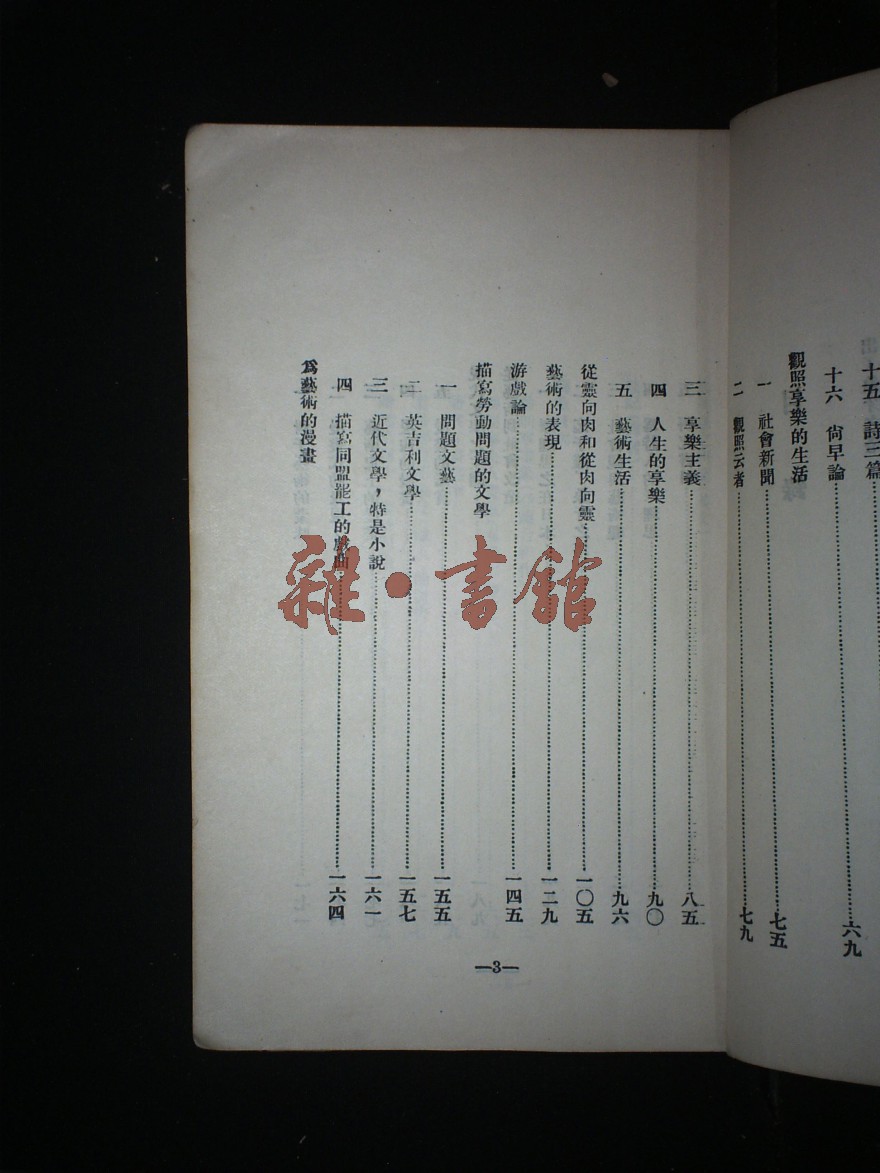 十五 詩三篇
十六 尙早論⋯⋯六九
觀照享樂的生活
一 社會新聞⋯⋯七五
二 觀照云者⋯⋯七九
三 享樂主義⋯⋯八五
四 人生的享樂⋯⋯九〇
五 藝術生活⋯⋯九六
從靈向肉和從肉向靈⋯⋯一〇五
藝術的表現⋯⋯一二九
游戲論⋯⋯一四五
描寫勞動問題的文學
一 問題文藝⋯⋯一五五
二 英吉利文學⋯⋯一五七
三 近代文學,特是小說⋯⋯一六一
四 描寫同盟罷工的戲曲⋯⋯一六四
爲藝術的漫畫
—3—
雜·書館